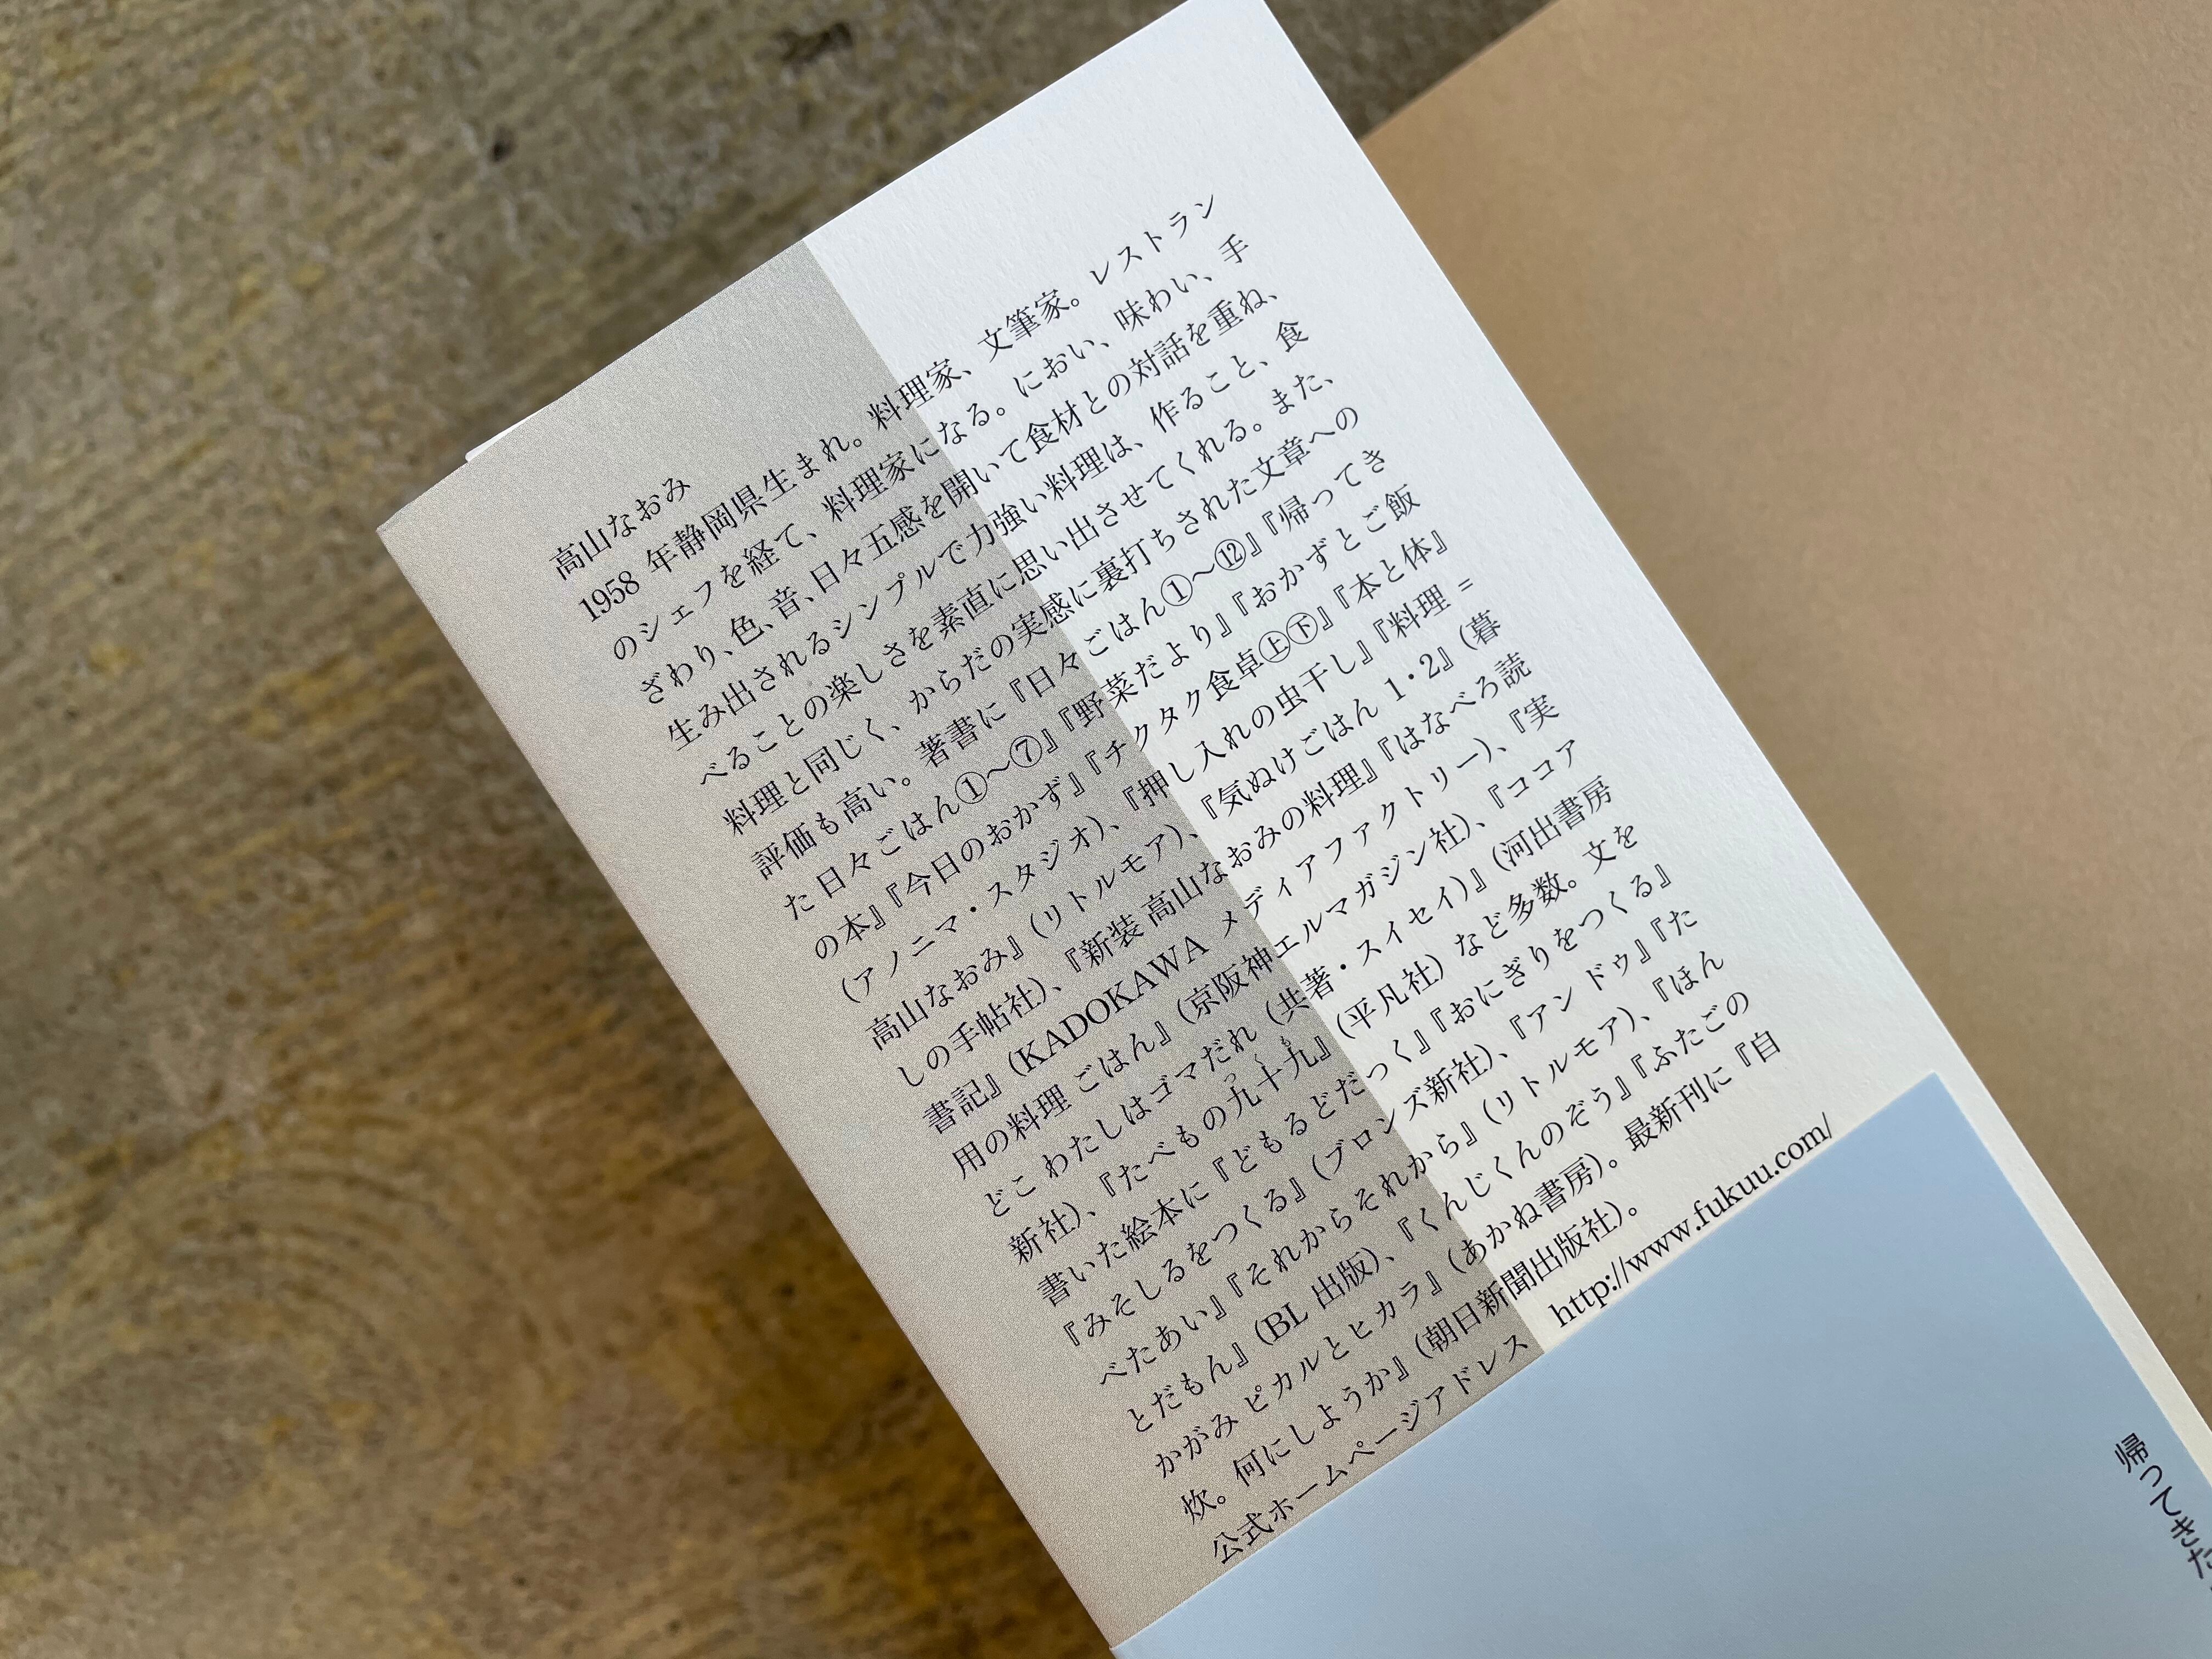 高山なおみ
1958 年静岡県生まれ。料理家、文筆家。レストラン
のシェフを経て、料理家になる。におい、味わい、手
ざわり、色、音、日々五感を開いて食材との対話を重ね、
生み出されるシンプルで力強い料理は、作ること、食
べることの楽しさを素直に思い出させてくれる。また、
料理と同じく、からだの実感に裏打ちされた文章への
評価も高い。著書に『日々ごはん①〜⑫』『帰ってき
た 日々ごはん①〜⑦』『野菜だより』『おかずとご飯
の本』『今日のおかず』『チクタク食卓㊤㊦』『本と体』
（アノニマ・スタジオ）、『押し入れの虫干し』『料理＝
高山なおみ』（リトルモア）、『気ぬけごはん 1・2』（暮
しの手帖社）、『新装 高山なおみの料理』『はなべろ読
書記』（KADOKAWA メディアファクトリー）、『実
用の料理 ごはん』（京阪神エルマガジン社）、『ココア
どこ わたしはゴマだれ（共著・スイセイ）』（河出書房
新社）、『たべもの九十九』（平凡社）など多数。文を
書いた絵本に『どもるどだっく』『おにぎりをつくる』
『みそしるをつくる』（ブロンズ新社）、『アン ドゥ』『た
べたあい』『それからそれから』（リトルモア）、『ほん
とだもん』（BL 出版）、『くんじくんのぞう』『ふたごの
かがみ ピカルとヒカラ』（あかね書房）。最新刊に『自
炊。何にしようか』（朝日新聞出版社）。
公式ホームページアドレス http://www.fukuu.com/
帰ってきた